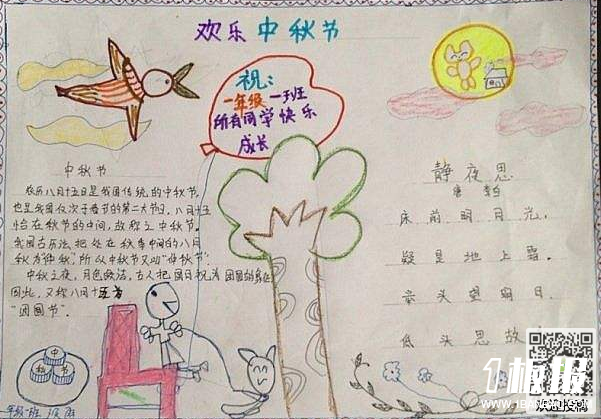 欢乐中秋节
祝:
一年级一班
所有同学快乐
成长
中秋节
农历八月十五日是我国传统的中秋节,
也是我国仅次于春节的第二大节日。八月十五
恰在秋节的中间,故称之中秋节。
我国古历法把处在秋季中间的八月
为"仲秋",所以中秋节又叫"仲秋节"。
中秋之夜,月色皎洁,古人把圆月视为团圆的象征
因此,又称八月十五为
"团圆节"。
中
秋 节
静夜思
唐 李白
床前明月光,
疑是地上霜。
举头望明月,
低头思故
年级 班
1板报
WWW.1BANBAO.COM